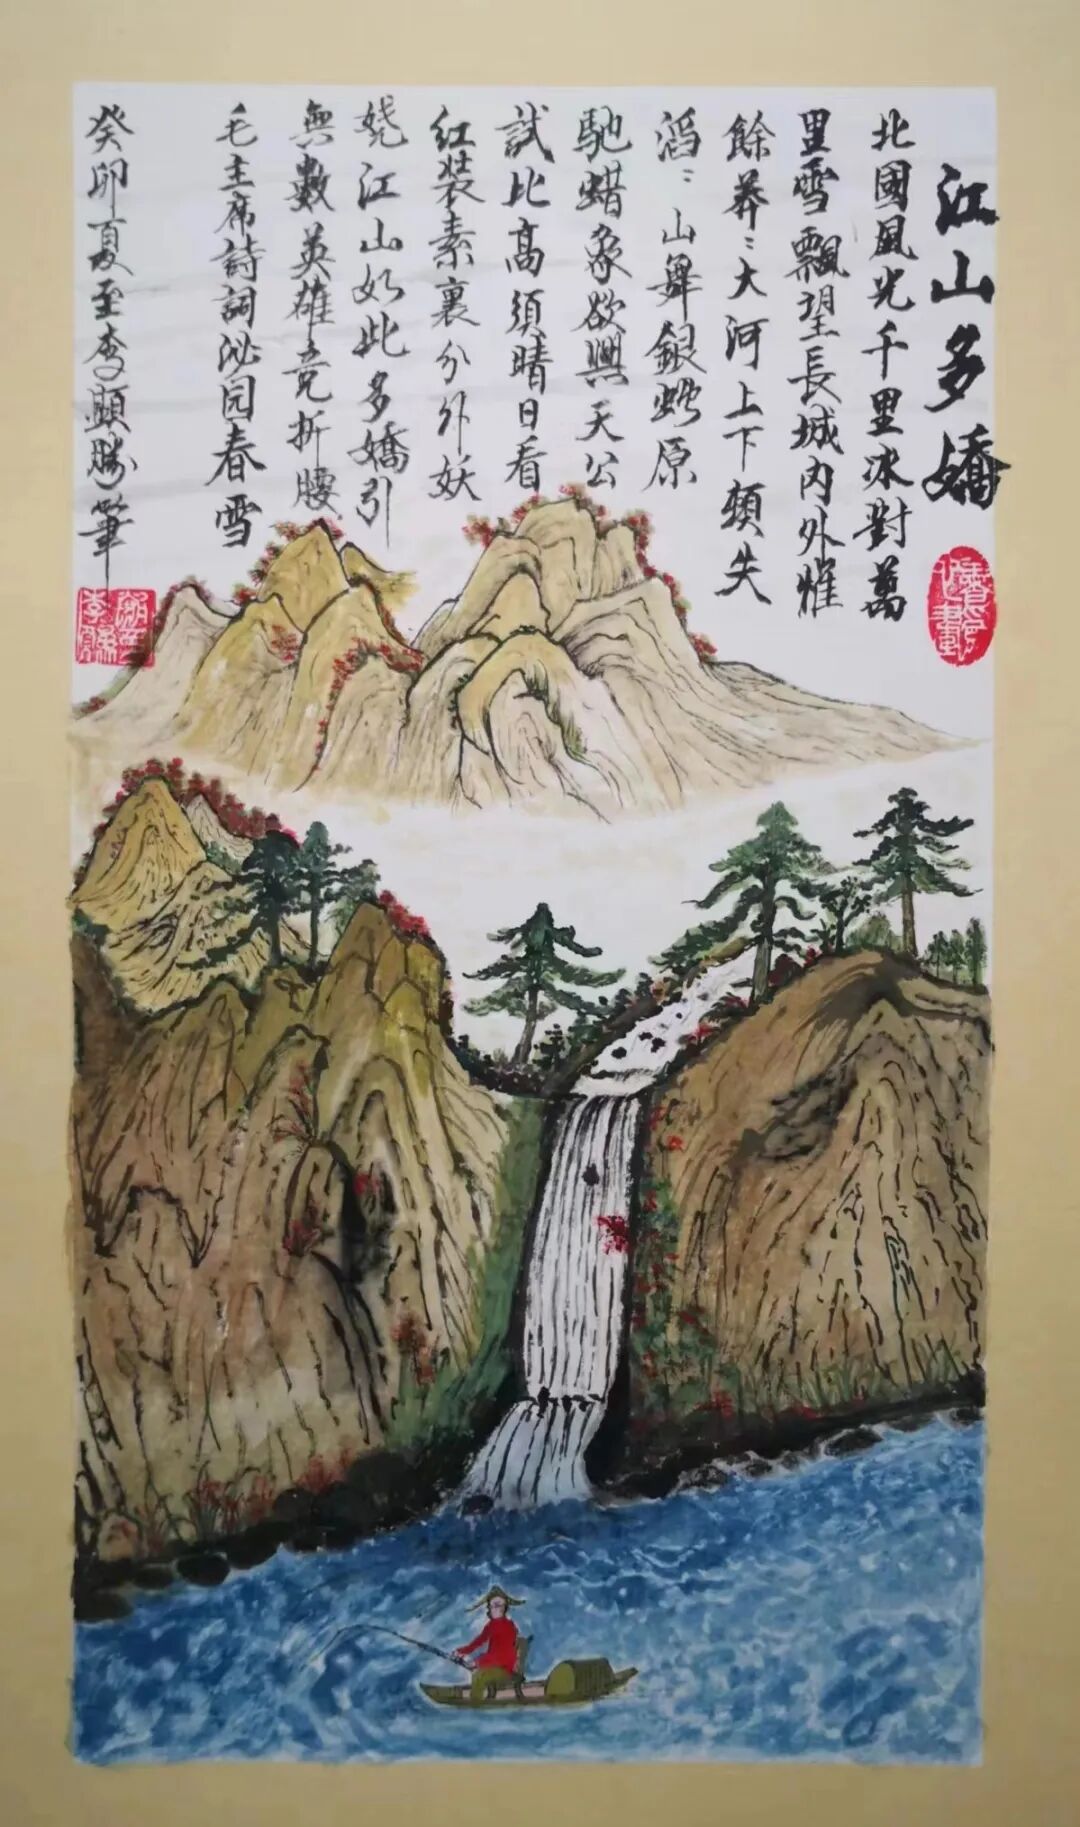 江山多嬌
北國風光千里冰對萬
里雪飄望長城内外惟
餘莽〻大河上下頓失
滔〻山舞銀蛇原
馳蜡象欲興天公
試比高須晴日看
红装素裹分外妖
娆江山如此多嬌引
無數英雄竞折腰
毛主席詩詞泌园春雪
癸卯夏至李顯勝筆